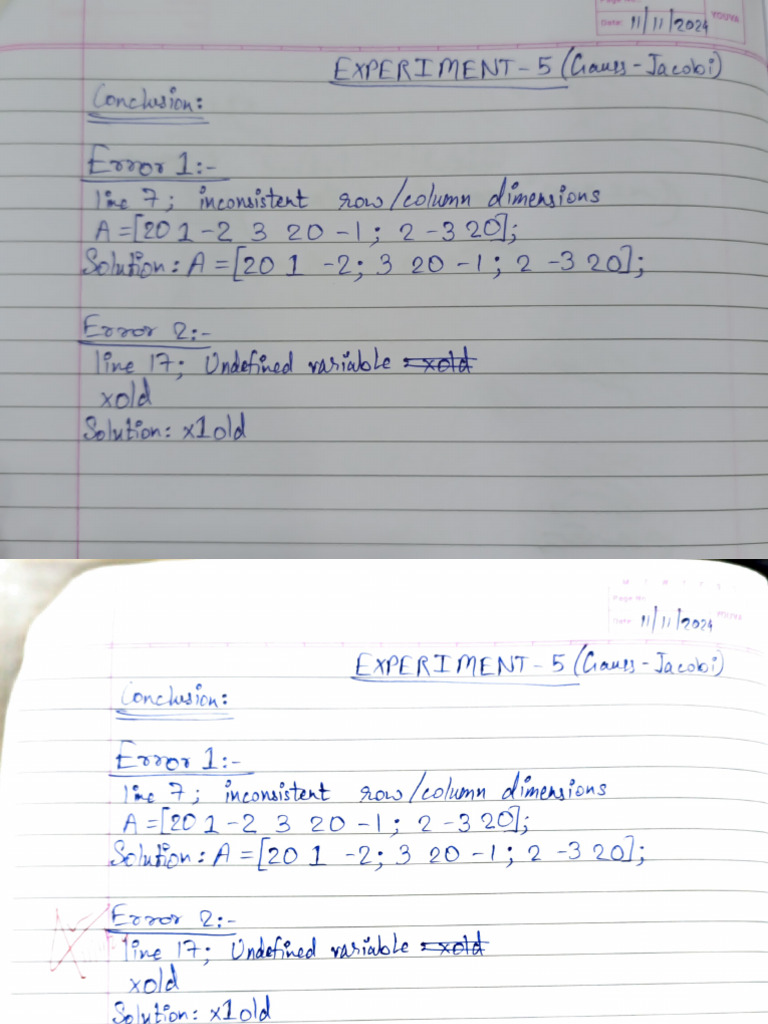 Date: 11/11/2024 YOUVA
EXPERIMENT - 5 (Gauss - Jacobi)
Conclusion:
Error 1:-
line 7; inconsistent row/column dimensions
A = [20 1 -2 3 20 -1; 2 -3 20];
Solution: A = [20 1 -2; 3 20 -1; 2 -3 20];
Error 2:-
line 17; Undefined variable = xold
xold
Solution: x1old
Page No.
Date: 11/11/2024 YOUVA
EXPERIMENT - 5 (Gauss - Jacobi)
Conclusion:
Error 1:-
line 7; inconsistent row/column dimensions
A = [20 1 -2 3 20 -1; 2 -3 20];
Solution: A = [20 1 -2; 3 20 -1; 2 -3 20];
Error 2:-
line 17; Undefined variable = xold
xold
Solution: x1old